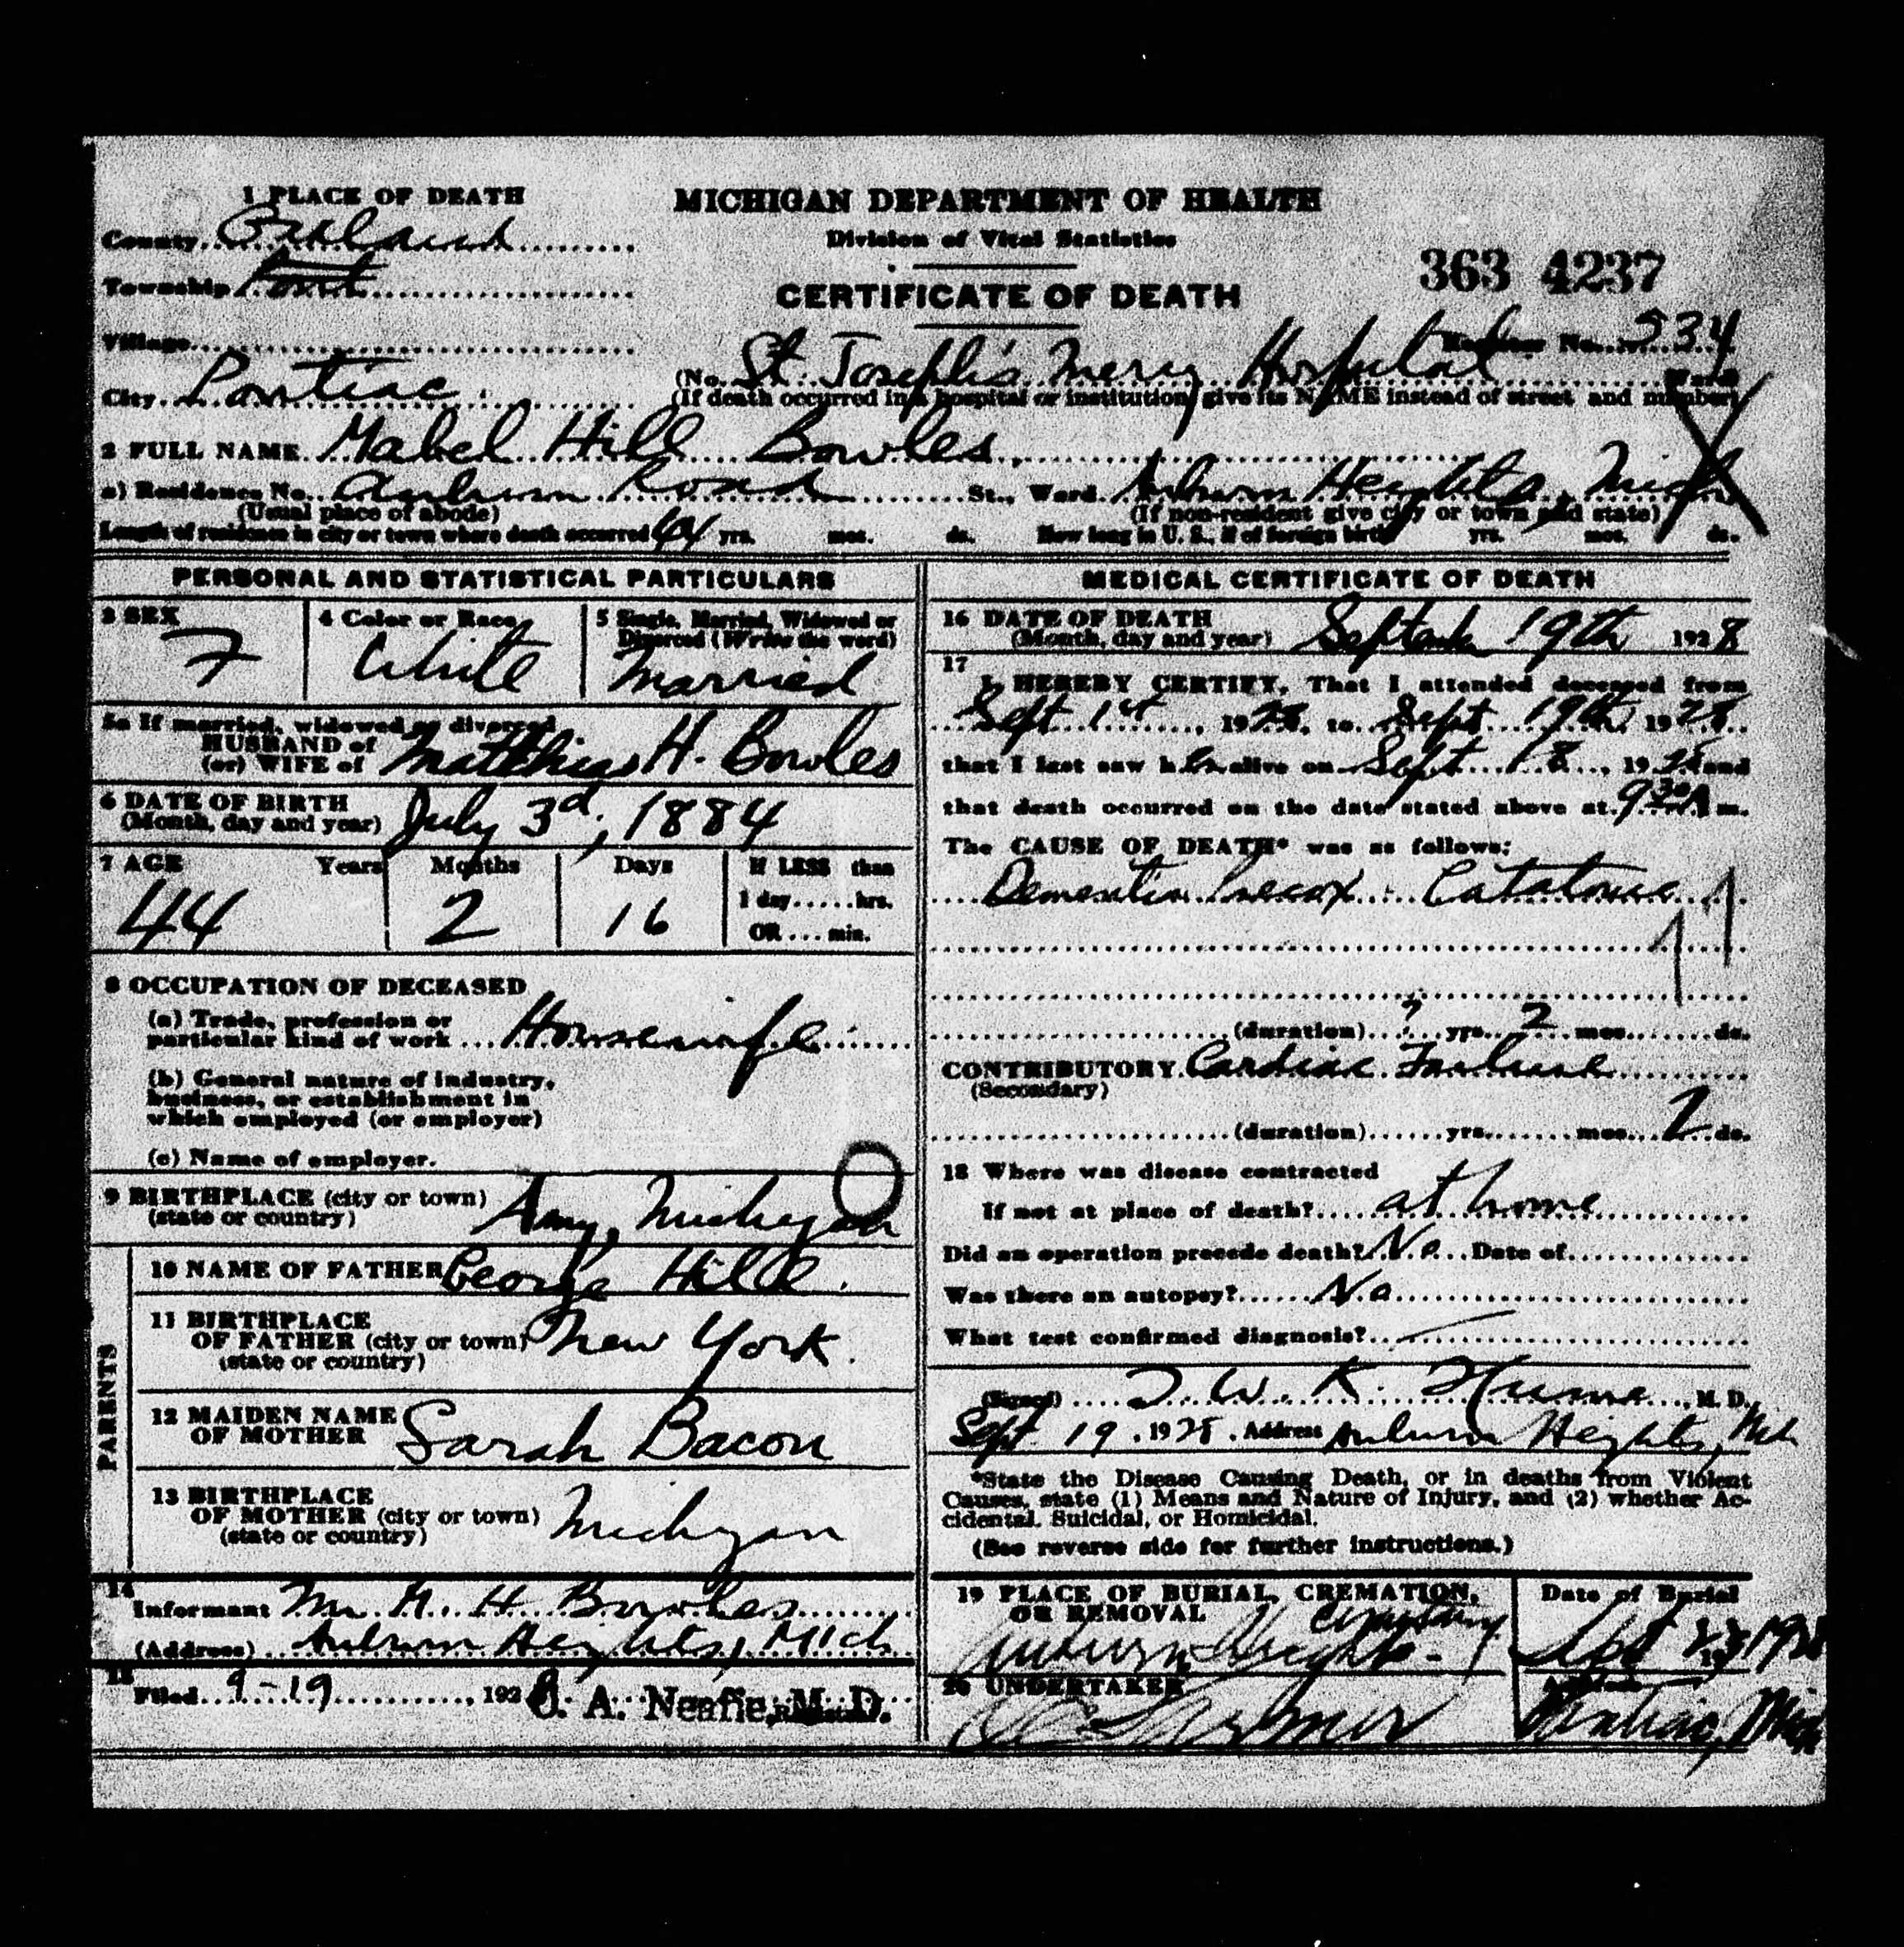 1 PLACE OF DEATH
County Oakland
Township Pont
Village
City Pontiac
MICHIGAN DEPARTMENT OF HEALTH
Division of Vital Statistics
CERTIFICATE OF DEATH
363 4237
No. 534
(No. St. Joseph's Mercy Hospital Ward
(If death occurred in a hospital or institution, give its NAME instead of street and number)
2 FULL NAME Mabel Hill Bowles
a) Residence No. Auburn Road St., Ward. Auburn Heights, Mich
(Usual place of abode) (If non-resident give city or town and state)
Length of residence in city or town where death occurred 44 yrs. mos. ds. How long in U. S., if of foreign birth? yrs. mos. ds.
PERSONAL AND STATISTICAL PARTICULARS
3 SEX
F
4 Color or Race
White
5 Single, Married, Widowed or
Divorced (Write the word)
Married
5a If married, widowed or divorced
HUSBAND of
(or) WIFE of Matthias H. Bowles
6 DATE OF BIRTH
(Month, day and year) July 3d, 1884
7 AGE Years Months Days If LESS than
44 2 16 1 day.....hrs.
OR....min.
8 OCCUPATION OF DECEASED
(a) Trade, profession or
particular kind of work Housewife
(b) General nature of industry,
business, or establishment in
which employed (or employer)
(c) Name of employer.
9 BIRTHPLACE (city or town)
(state or country) Amy, Michigan
PARENTS
10 NAME OF FATHER George Hill.
11 BIRTHPLACE
OF FATHER (city or town) New York.
(state or country)
12 MAIDEN NAME
OF MOTHER Sarah Bacon
13 BIRTHPLACE
OF MOTHER (city or town) Michigan
(state or country)
14
Informant M. H. Bowles
(Address) Auburn Heights, Mich
15
Filed 9-19, 1928 C. A. Neafie, M. D.
MEDICAL CERTIFICATE OF DEATH
16 DATE OF DEATH
(Month, day and year) September 19th 1928
17
I HEREBY CERTIFY, That I attended deceased from
Sept 1st, 1928, to Sept 19th 1928
that I last saw her alive on Sept 18, 1928 and
that death occurred on the date stated above at 9 30 A m.
The CAUSE OF DEATH* was as follows:
Dementia Precox - Catatonic
(duration) ? yrs. 2 mos. ds.
CONTRIBUTORY Cardiac Failure
(Secondary)
(duration) yrs. mos. 2 ds.
18 Where was disease contracted
If not at place of death? at home
Did an operation precede death? No Date of
Was there an autopsy? No
What test confirmed diagnosis?
(Signed) K. Hume, M. D.
Sept. 19, 1928. Address Auburn Heights, Mch
*State the Disease Causing Death, or in deaths from Violent
Causes, state (1) Means and Nature of Injury, and (2) whether Ac-
cidental, Suicidal, or Homicidal.
(See reverse side for further instructions.)
19 PLACE OF BURIAL, CREMATION,
OR REMOVAL Cemetery
Auburn Heights
Date of Burial
Sept 1928
20 UNDERTAKER
Farmer
Address
Pontiac, Mich